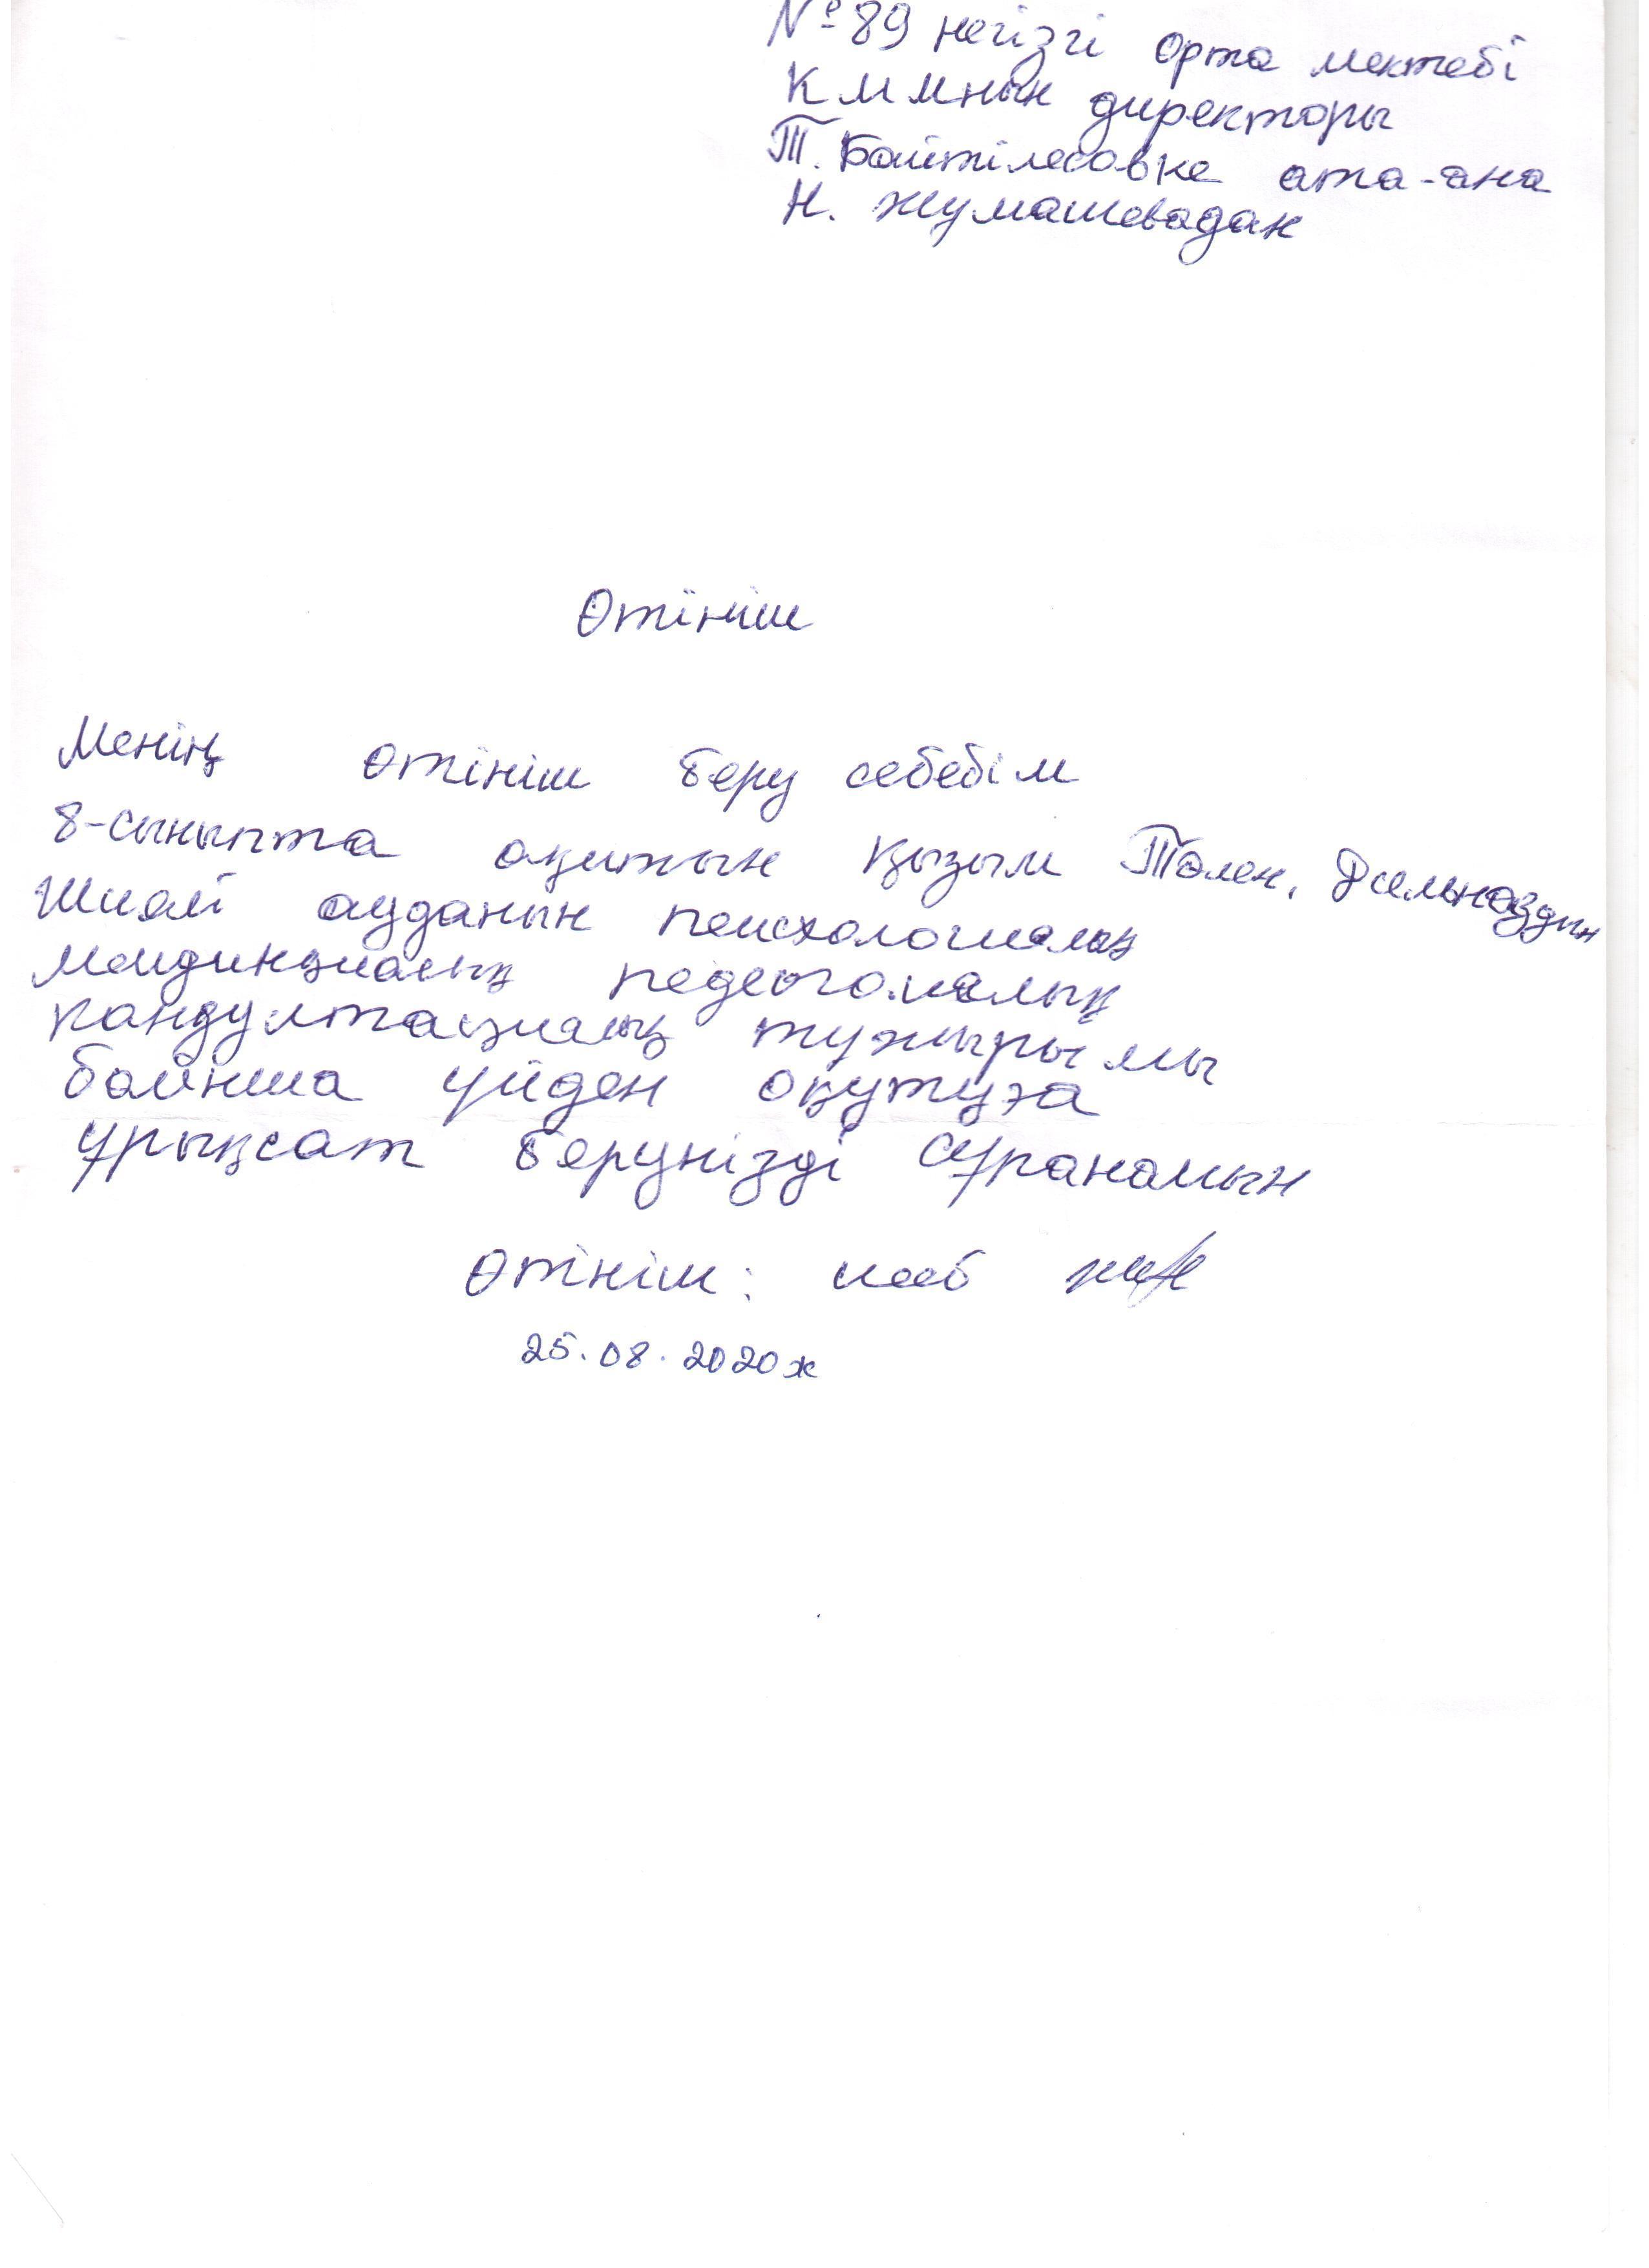 №89 негізгі орта мектебі
КММнын директоры
Т. Байтілесовке ата-ана
Н. Жумашевадан
Өтініш
Менің өтініш беру себебім
8-сыныпта оқитын қызым Төлен, Дильназдын
Шиелі ауданын псисхологиялық
медицналық педеогогиялық
кансултациялық тужырымы
бойнша үйден оқутуға
ұрықсат берунізді сұранамын
Өтініш:
25.08.2020ж